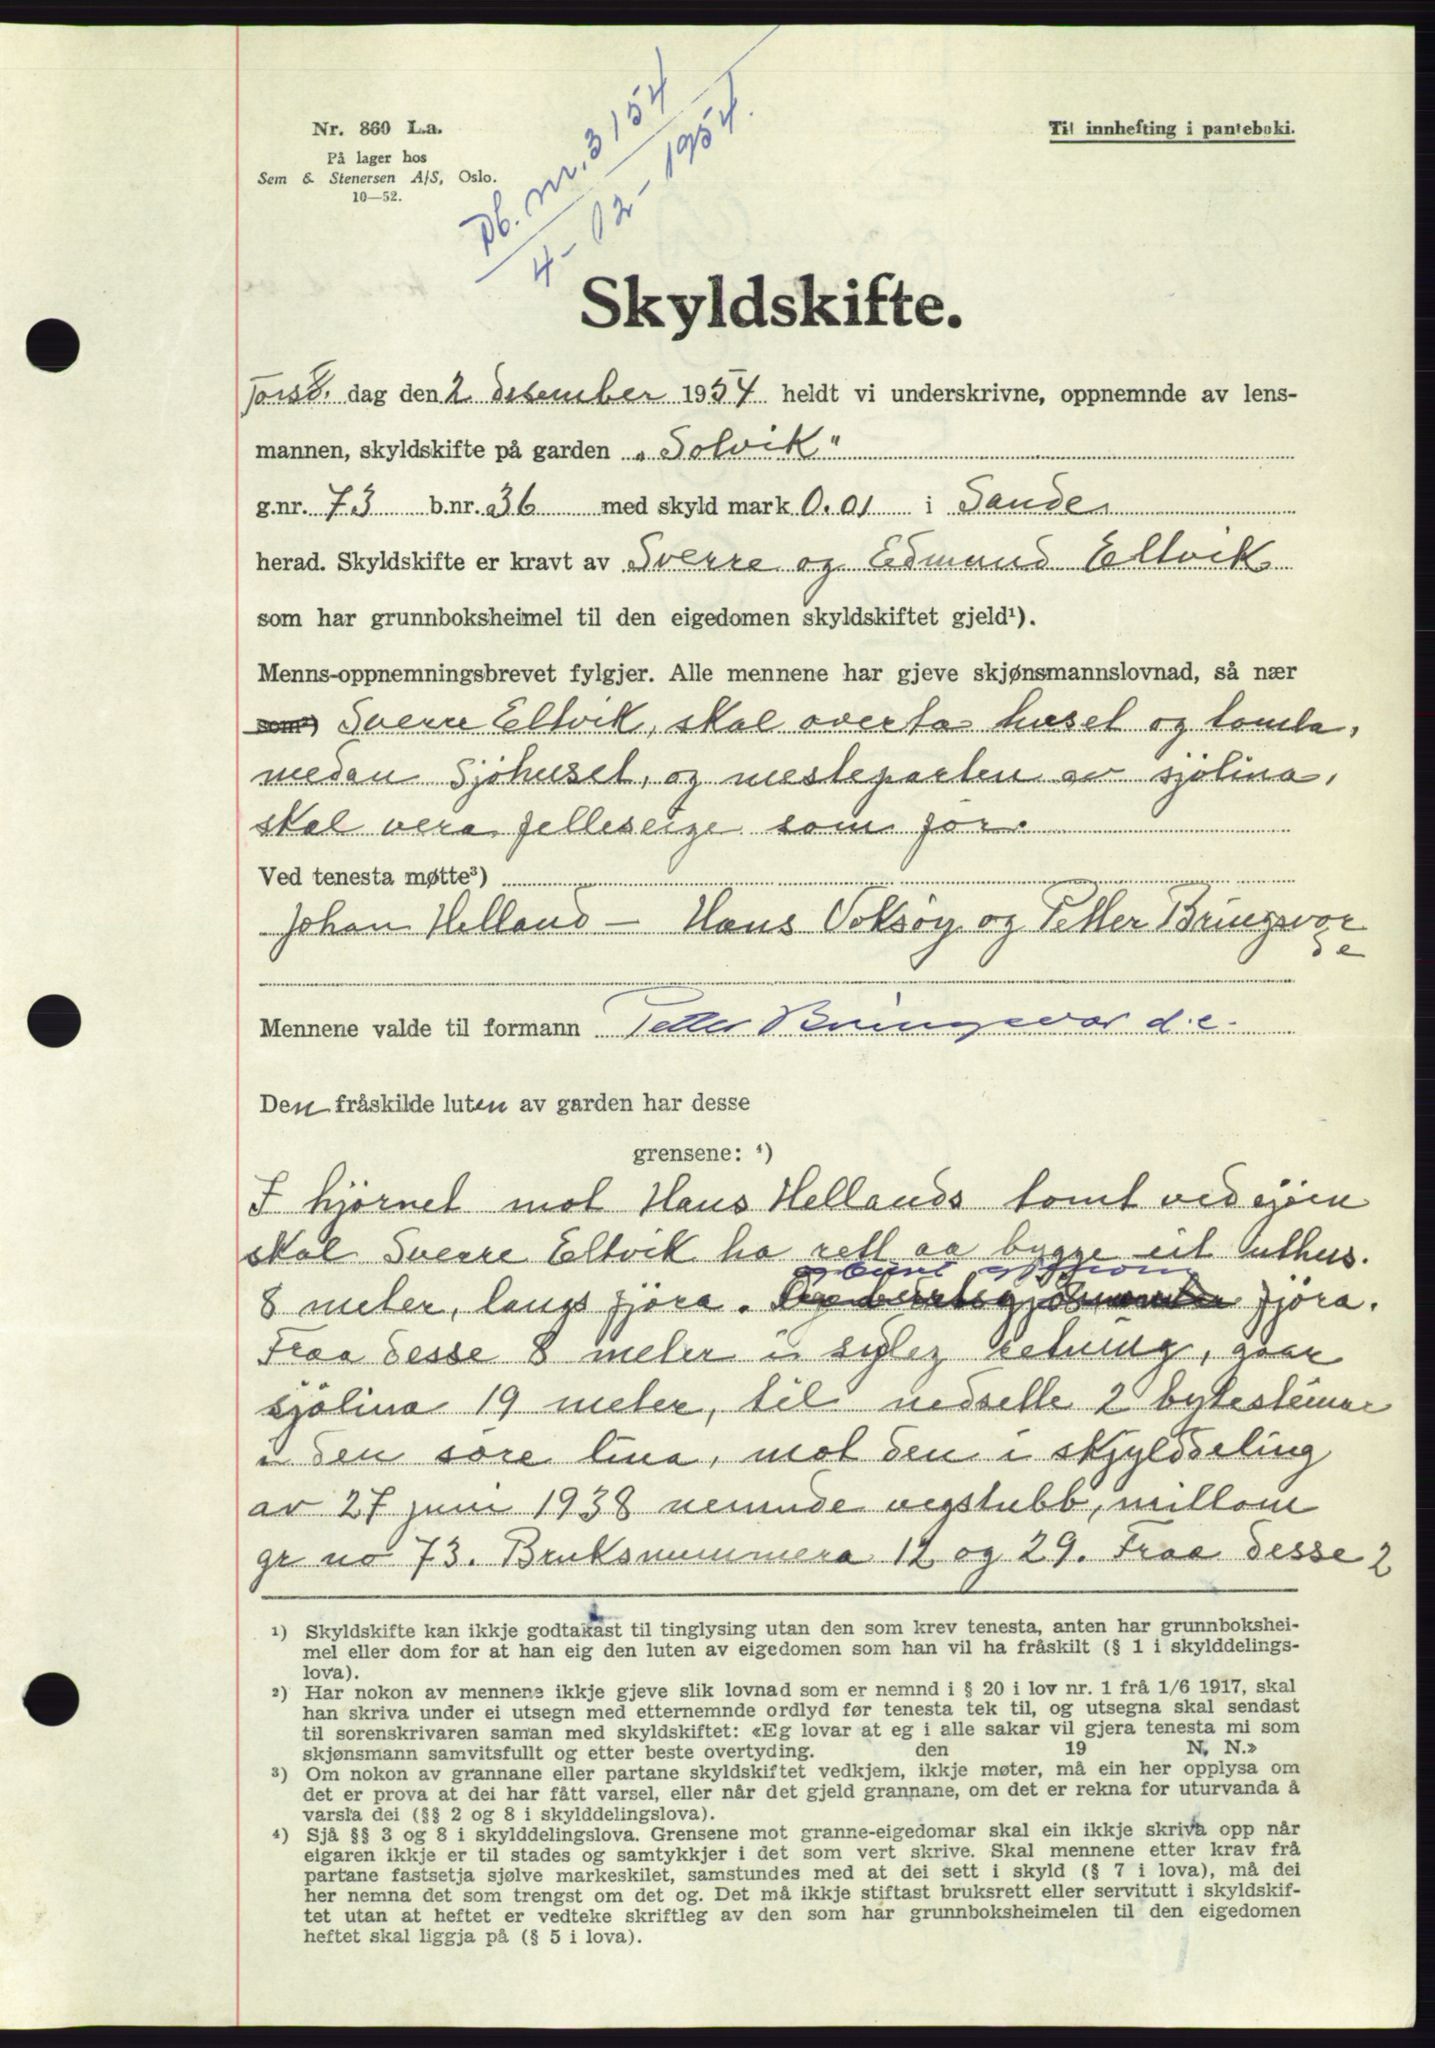 Nr. 860 L.a.
På lager hos
Sem & Stenersen A/S, Oslo.
10—52.
Db. nr. 3154
4-12-1954.
Til innhefting i panteboki.
Skyldskifte.
Torsd. dag den 2 desember 1954 heldt vi underskrivne, oppnemnde av lens-
mannen, skyldskifte på garden "Solvik"
g.nr. 73 b.nr. 36 med skyld mark 0.01 i Sande
herad. Skyldskifte er kravt av Sverre og Edmund Eltvik
som har grunnboksheimel til den eigedomen skyldskiftet gjeld¹).
Menns-oppnemningsbrevet fylgjer. Alle mennene har gjeve skjønsmannslovnad, så nær
som²) Sverre Eltvik, skal overta huset og tomta,
medan Sjöhuset, og mesteparten av sjölina,
skal vera felleseige som för.
Ved tenesta møtte³)
Johan Helland — Hans Voksöy og Petter Bringsvor
d e
Mennene valde til formann Petter Bringsvor d.e.
Den fråskilde luten av garden har desse
grensene: ⁴)
I hjörnet mot Hans Hellands tomt ved sjöen
skal Sverre Eltvik ha rett aa bygge eit uthus.
8 meter, langs fjöra. fjöra.
Fraa desse 8 meter i sydleg retning, gaar
sjölina 19 meter, til nedsette 2 bytesteinar
i den söre lina, mot den i skjylddeling
av 27 juni 1938 nemnde vegstubb, millom
gr no 73. Bruksnummera 12 og 29. Fraa desse 2
¹) Skyldskifte kan ikkje godtakast til tinglysing utan den som krev tenesta, anten har grunnbokshei-
mel eller dom for at han eig den luten av eigedomen som han vil ha fråskilt (§ 1 i skylddelings-
lova).
²) Har nokon av mennene ikkje gjeve slik lovnad som er nemnd i § 20 i lov nr. 1 frå 1/6 1917, skal
han skriva under ei utsegn med etternemnde ordlyd før tenesta tek til, og utsegna skal sendast
til sorenskrivaren saman med skyldskiftet: «Eg lovar at eg i alle sakar vil gjera tenesta mi som
skjønsmann samvitsfullt og etter beste overtyding. den 19 N. N.»
³) Om nokon av grannane eller partane skyldskiftet vedkjem, ikkje møter, må ein her opplysa om
det er prova at dei har fått varsel, eller når det gjeld grannane, om det er rekna for uturvanda å
varsla dei (§§ 2 og 8 i skylddelingslova).
⁴) Sjå §§ 3 og 8 i skylddelingslova. Grensene mot granne-eigedomar skal ein ikkje skriva opp når
eigaren ikkje er til stades og samtykkjer i det som vert skrive. Skal mennene etter krav frå
partane fastsetja sjølve markeskilet, samstundes med at dei sett i skyld (§ 7 i lova), må dei
her nemna det som trengst om det og. Det må ikkje stiftast bruksrett eller servitutt i skyldskif-
tet utan at heftet er vedteke skriftleg av den som har grunnboksheimelen til den eigedomen
heftet skal liggja på (§ 5 i lova).